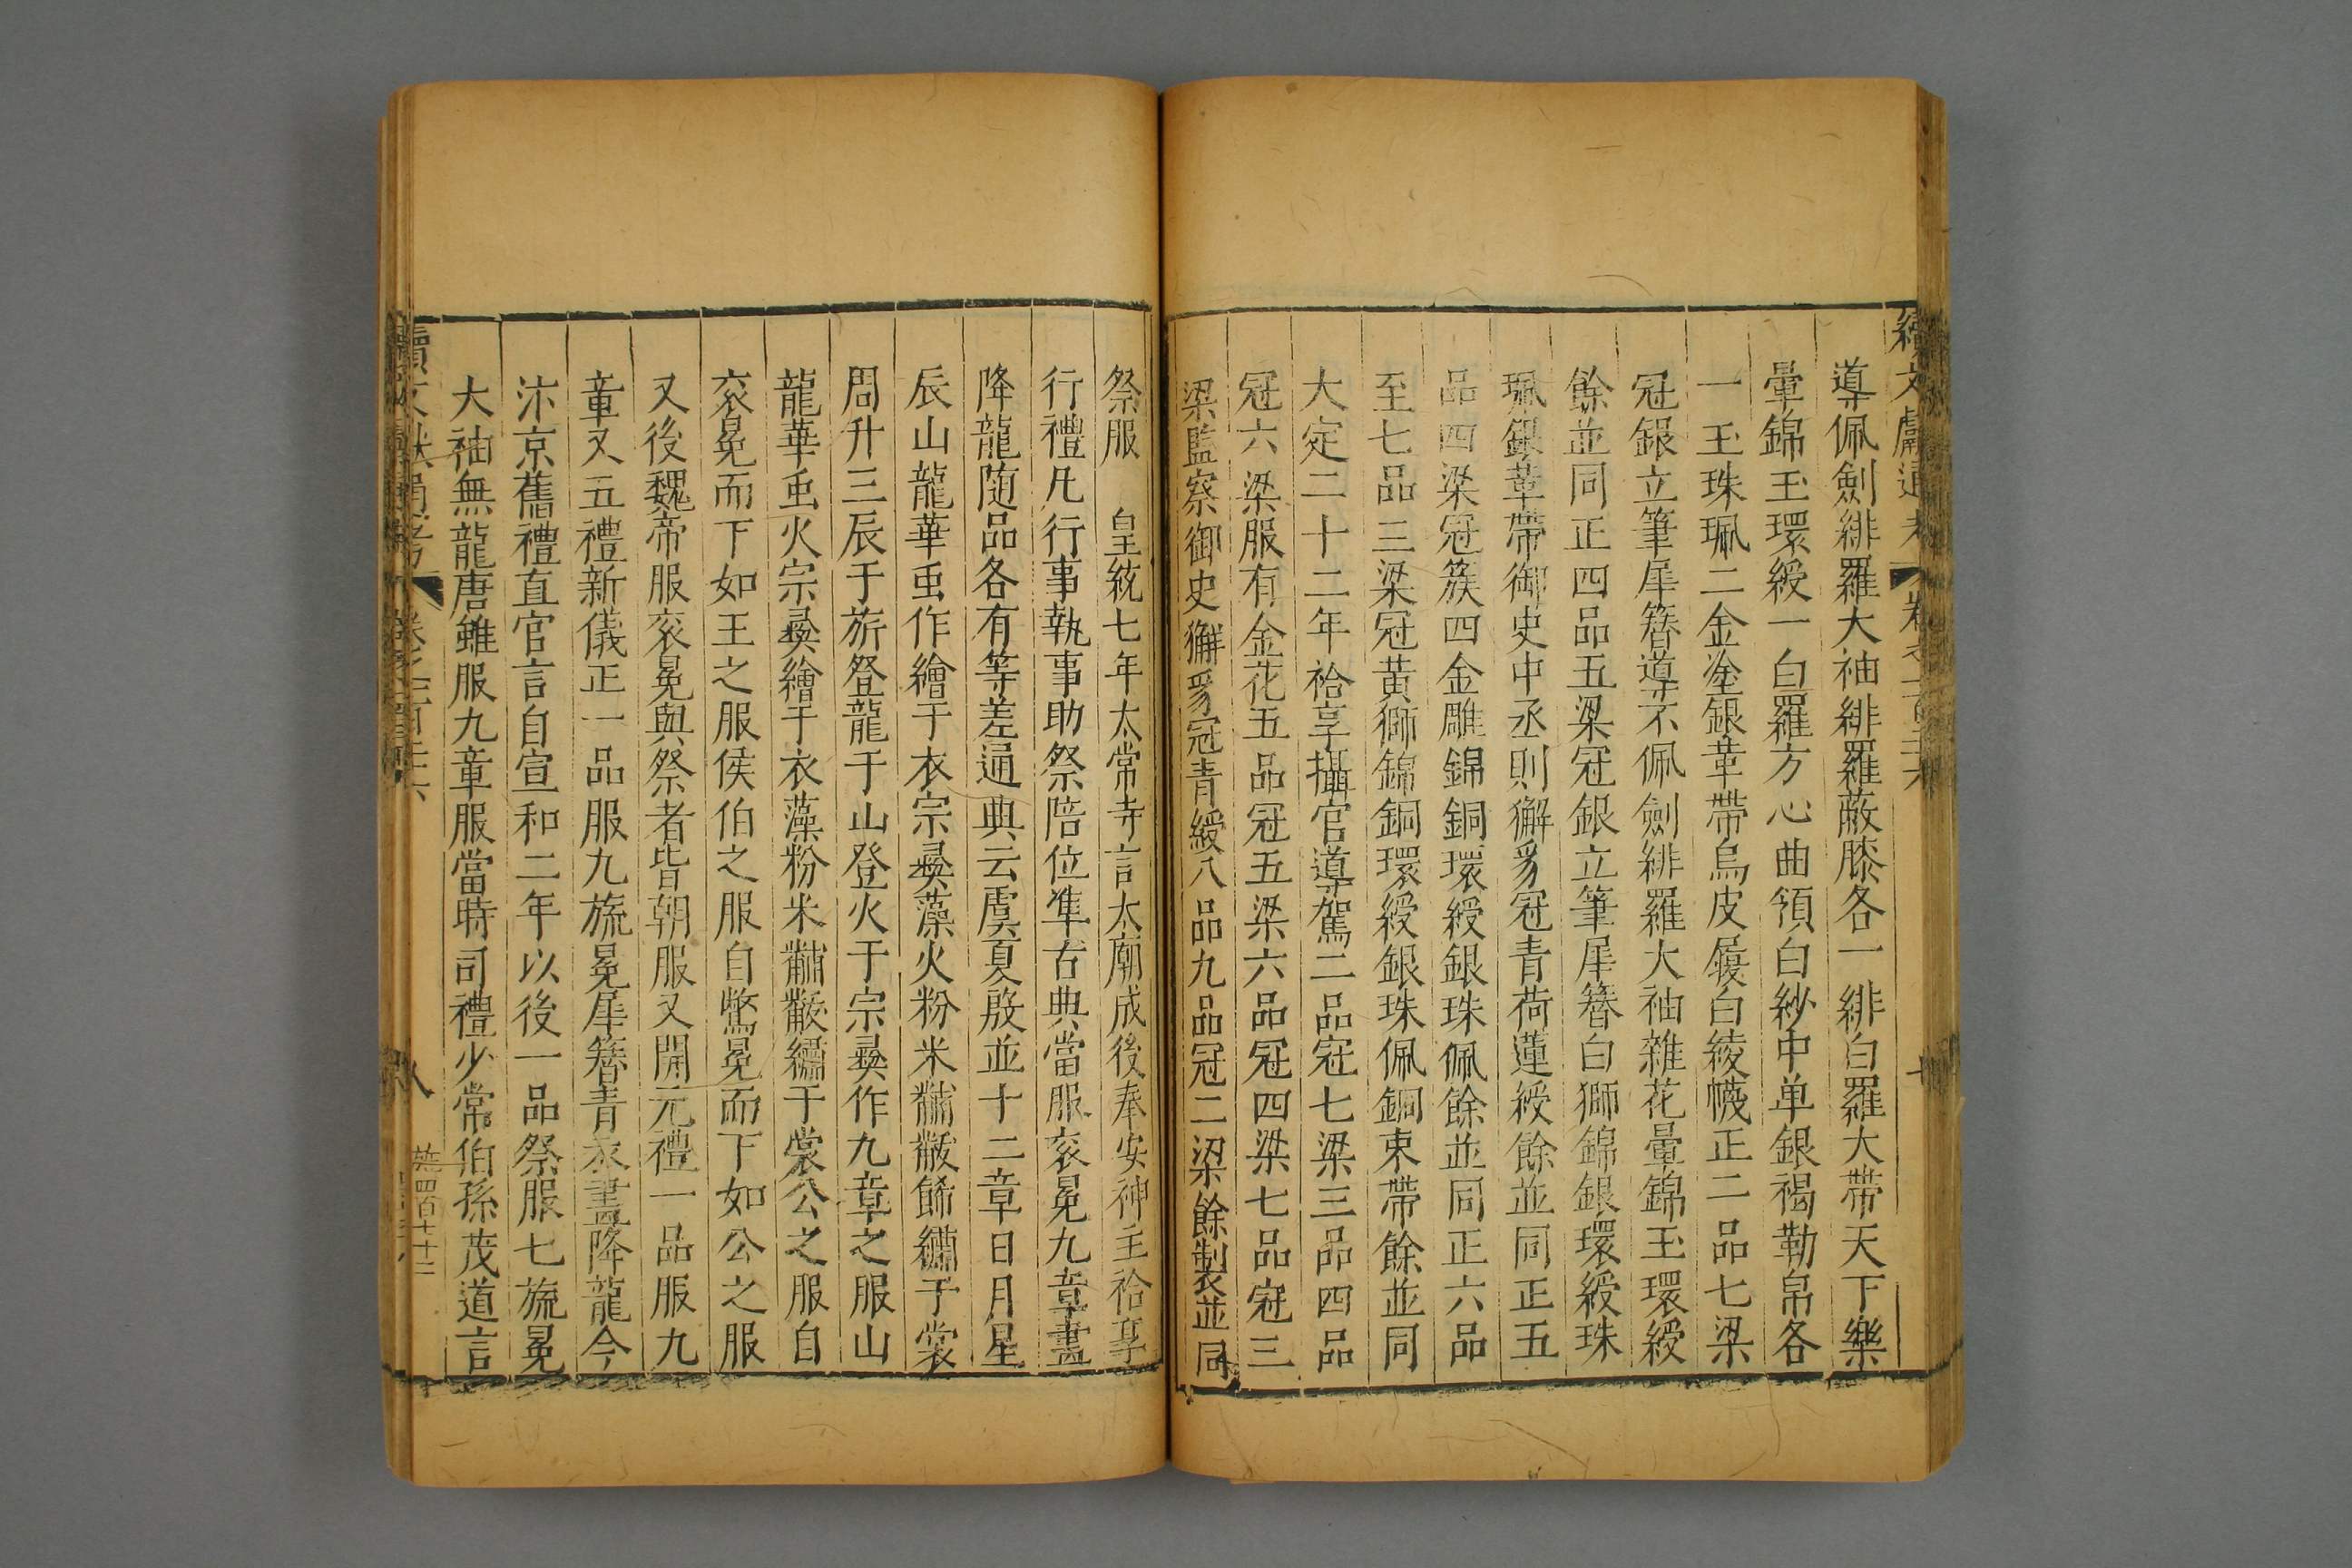 導佩劍緋羅大袖緋羅蔽膝各一緋白羅大帶天下樂
暈錦玉環綬一白羅方心曲領白紗中单銀褐勒帛各
一玉珠珮二金塗銀革帶烏皮履白綾襪正二品七梁
冠銀立筆犀簪導不佩劍緋羅大袖雜花暈錦玉環綬
餘並同正四品五梁冠銀立筆犀簪白獅錦銀環綬珠
珮銀革帶御史中丞則獬豸冠青荷蓮綬餘並同正五
品四梁冠簇四金雕錦銅環綬銀珠佩餘並同正六品
至七品三梁冠黃獅錦銅環綬銀珠佩銅束帶餘並同
大定二十二年祫享攝官導駕二品冠七梁三品四品
冠六梁服有金花五品冠五梁六品冠四梁七品冠三
梁監察御史獬豸冠青綬八品九品冠二梁餘製並同
祭服 皇統七年太常寺言太廟成後奉安神主祫享
行禮凡行事執事助祭陪位準古典當服衮冕九章畫
降龍随品各有等差通典云虞夏殷並十二章日月星
辰山龍華虫作繪于衣宗彝藻火粉米黼黻絺繡于裳
周升三辰于旂登龍于山登火于宗彝作九章之服山
龍華虫火宗彝繪于衣藻粉米黼黻繡于裳公之服自
衮冕而下如王之服侯伯之服自鷩冕而下如公之服
又後魏帝服衮冕與祭者皆朝服又開元禮一品服九
章又五禮新儀正一品服九旒冕犀簪青衣畫降龍今
汴京舊禮直官言自宣和二年以後一品祭服七旒冕
大袖無龍唐雖服九章服當時司禮少常伯孫茂道言
八